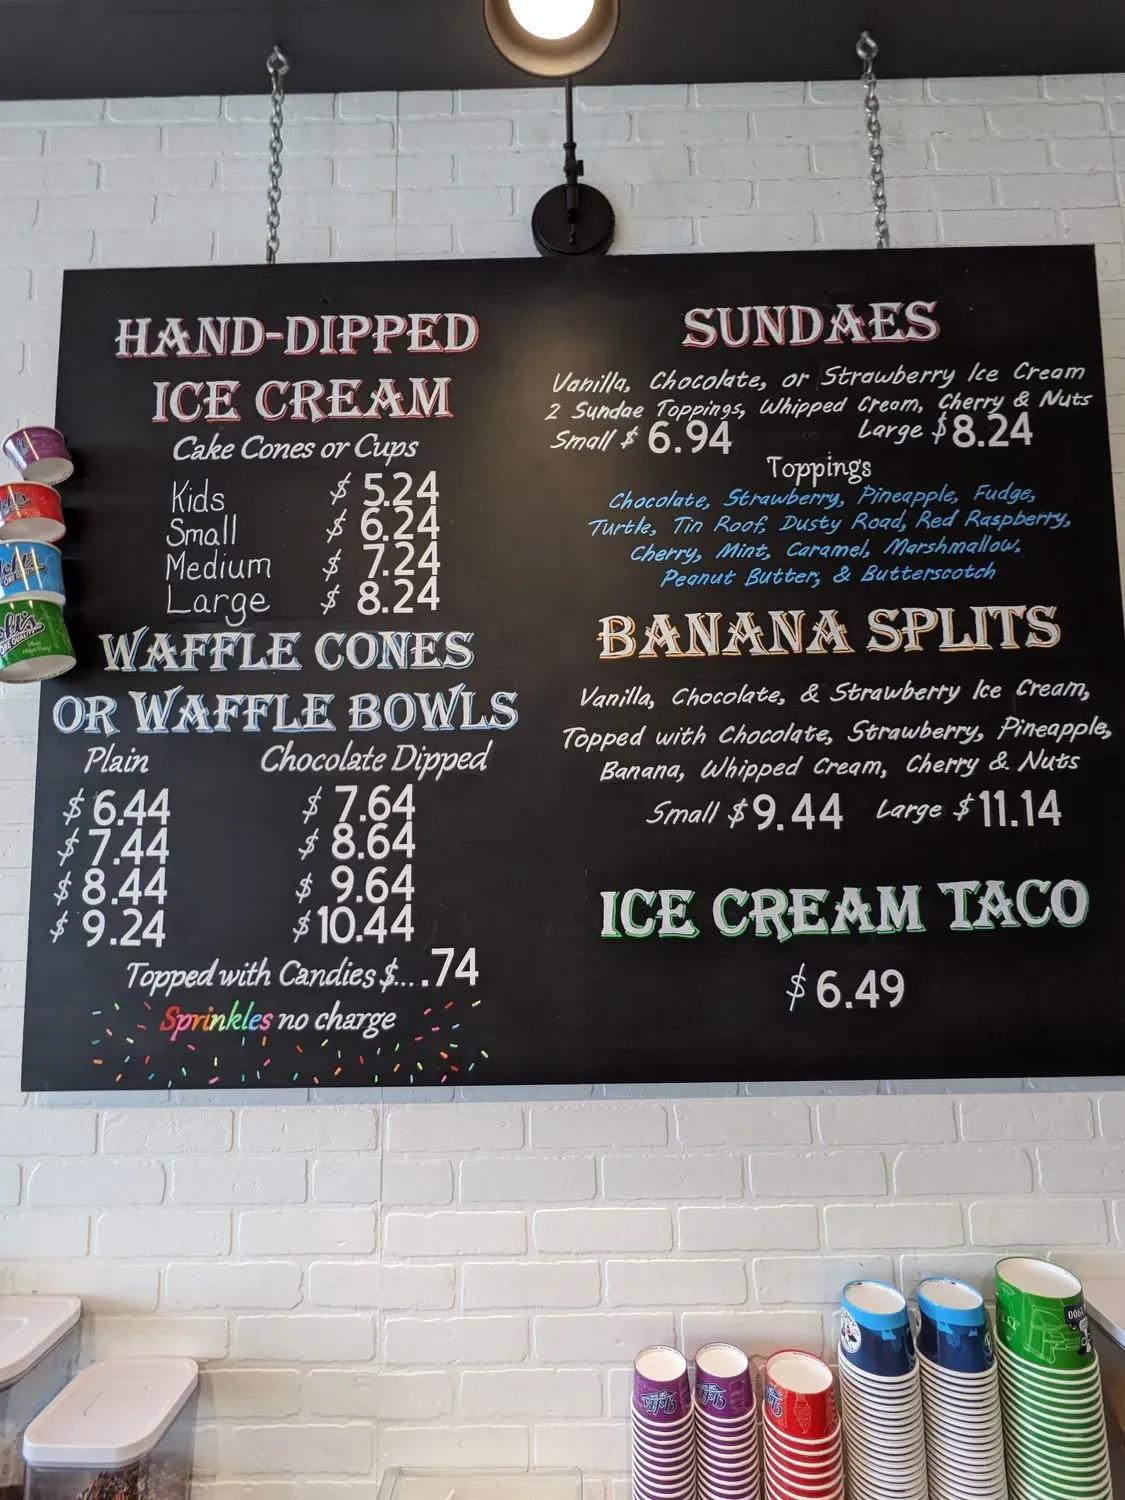 HAND-DIPPED
ICE CREAM
Cake Cones or Cups
Kids $ 5.24
Small $ 6.24
Medium $ 7.24
Large $ 8.24
WAFFLE CONES
OR WAFFLE BOWLS
Plain Chocolate Dipped
$ 6.44 $ 7.64
$ 7.44 $ 8.64
$ 8.44 $ 9.64
$ 9.24 $ 10.44
Topped with Candies $... .74
Sprinkles no charge
SUNDAES
Vanilla, Chocolate, or Strawberry Ice Cream
2 Sundae Toppings, Whipped Cream, Cherry & Nuts
Small $ 6.94 Large $ 8.24
Toppings
Chocolate, Strawberry, Pineapple, Fudge,
Turtle, Tin Roof, Dusty Road, Red Raspberry,
Cherry, Mint, Caramel, Marshmallow,
Peanut Butter, & Butterscotch
BANANA SPLITS
Vanilla, Chocolate, & Strawberry Ice Cream,
Topped with Chocolate, Strawberry, Pineapple,
Banana, Whipped Cream, Cherry & Nuts
Small $ 9.44 Large $ 11.14
ICE CREAM TACO
$ 6.49